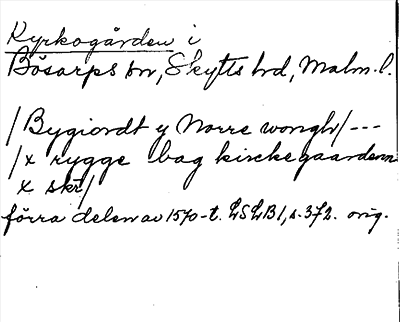 Kyrkogården i
Bösarps sn, Skytts hd, Malm. l.
/Bygiordt y Norre wongh/ ---
/x rygge bag kirckegaardenn
x skr/
förra delen av 1570-t. LSLB1, s. 372. orig.